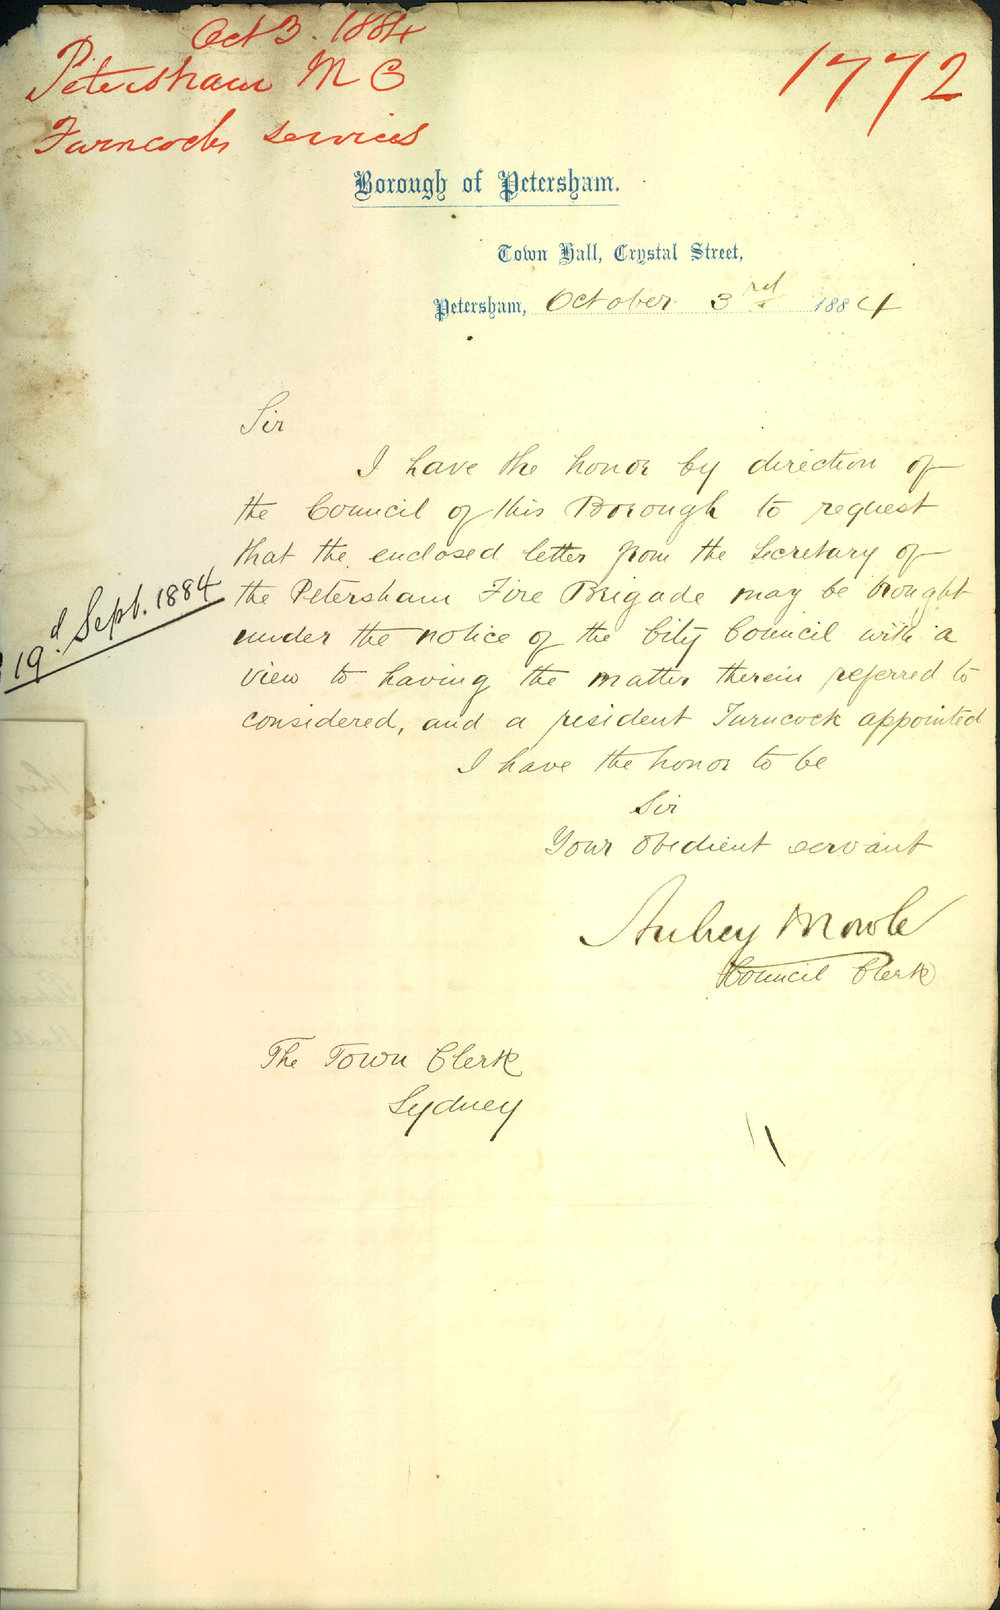 Oct 3. 1884
Petersham M C
Turncocks services
1772
Borough of Petersham.
Town Hall, Crystal Street,
Petersham, October 3rd 1884
Sir
I have the honor by direction of
the Council of this Borough to request
that the enclosed letter from the Secretary of
19d Sept. 1884
the Petersham Fire Brigade may be brought
under the notice of the City Council with a
view to having the matter therein referred to
considered, and a resident Turncock appointed
I have the honor to be
Sir
Your Obedient servant
Aubrey Mowle
Council Clerk
The Town Clerk
Sydney